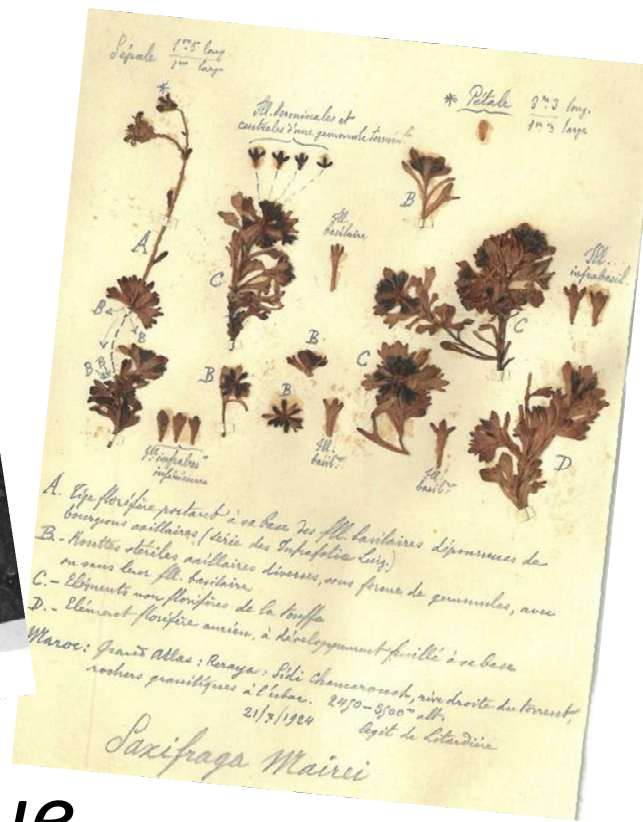 Sépale 1mm5 long
1mm large
* Pétale 3mm3 long.
1mm3 large
*
fll. terminales et
centrales d'une gemmule termin.le
B
fll.
basilaire
A
C
fll.
infrabasil.
C
B
B
B
B
B
B
C
B
D
fll. infrabas.
inférieures
fll.
basil.
fll.
basil.
A. Tige florifère portant à sa base des fll. basilaires dépourvues de
bourgeons axillaires (série des Infrafolia Luiz.)
B.- Rosettes stériles axillaires diverses, sous forme de gemmules, avec
ou sans leur fll. basilaire
C.- Eléments non florifères de la touffe
D.- Elément florifère ancien, à développement feuillé à sa base
Maroc: Grand Atlas: Reraya: Sidi Chamarouch, rive droite du torrent,
rochers granitiques à l'ubac. 2450-2500m alt.
21/7/1924 legit de Litardière
Saxifraga Mairei
ue